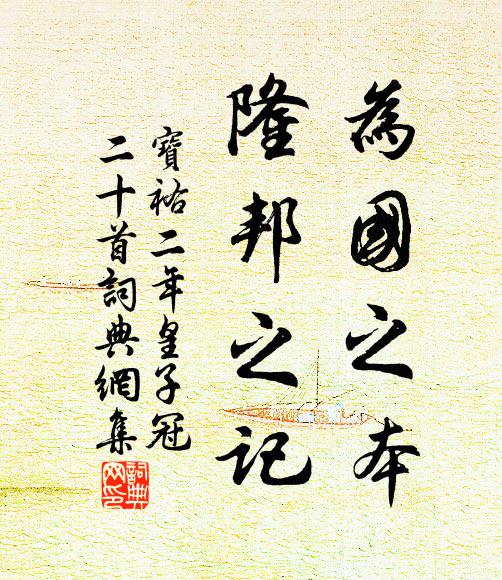 為國之本
隆邦之記
寶祐二年皇子冠
二十首詞典網集
詞典网印